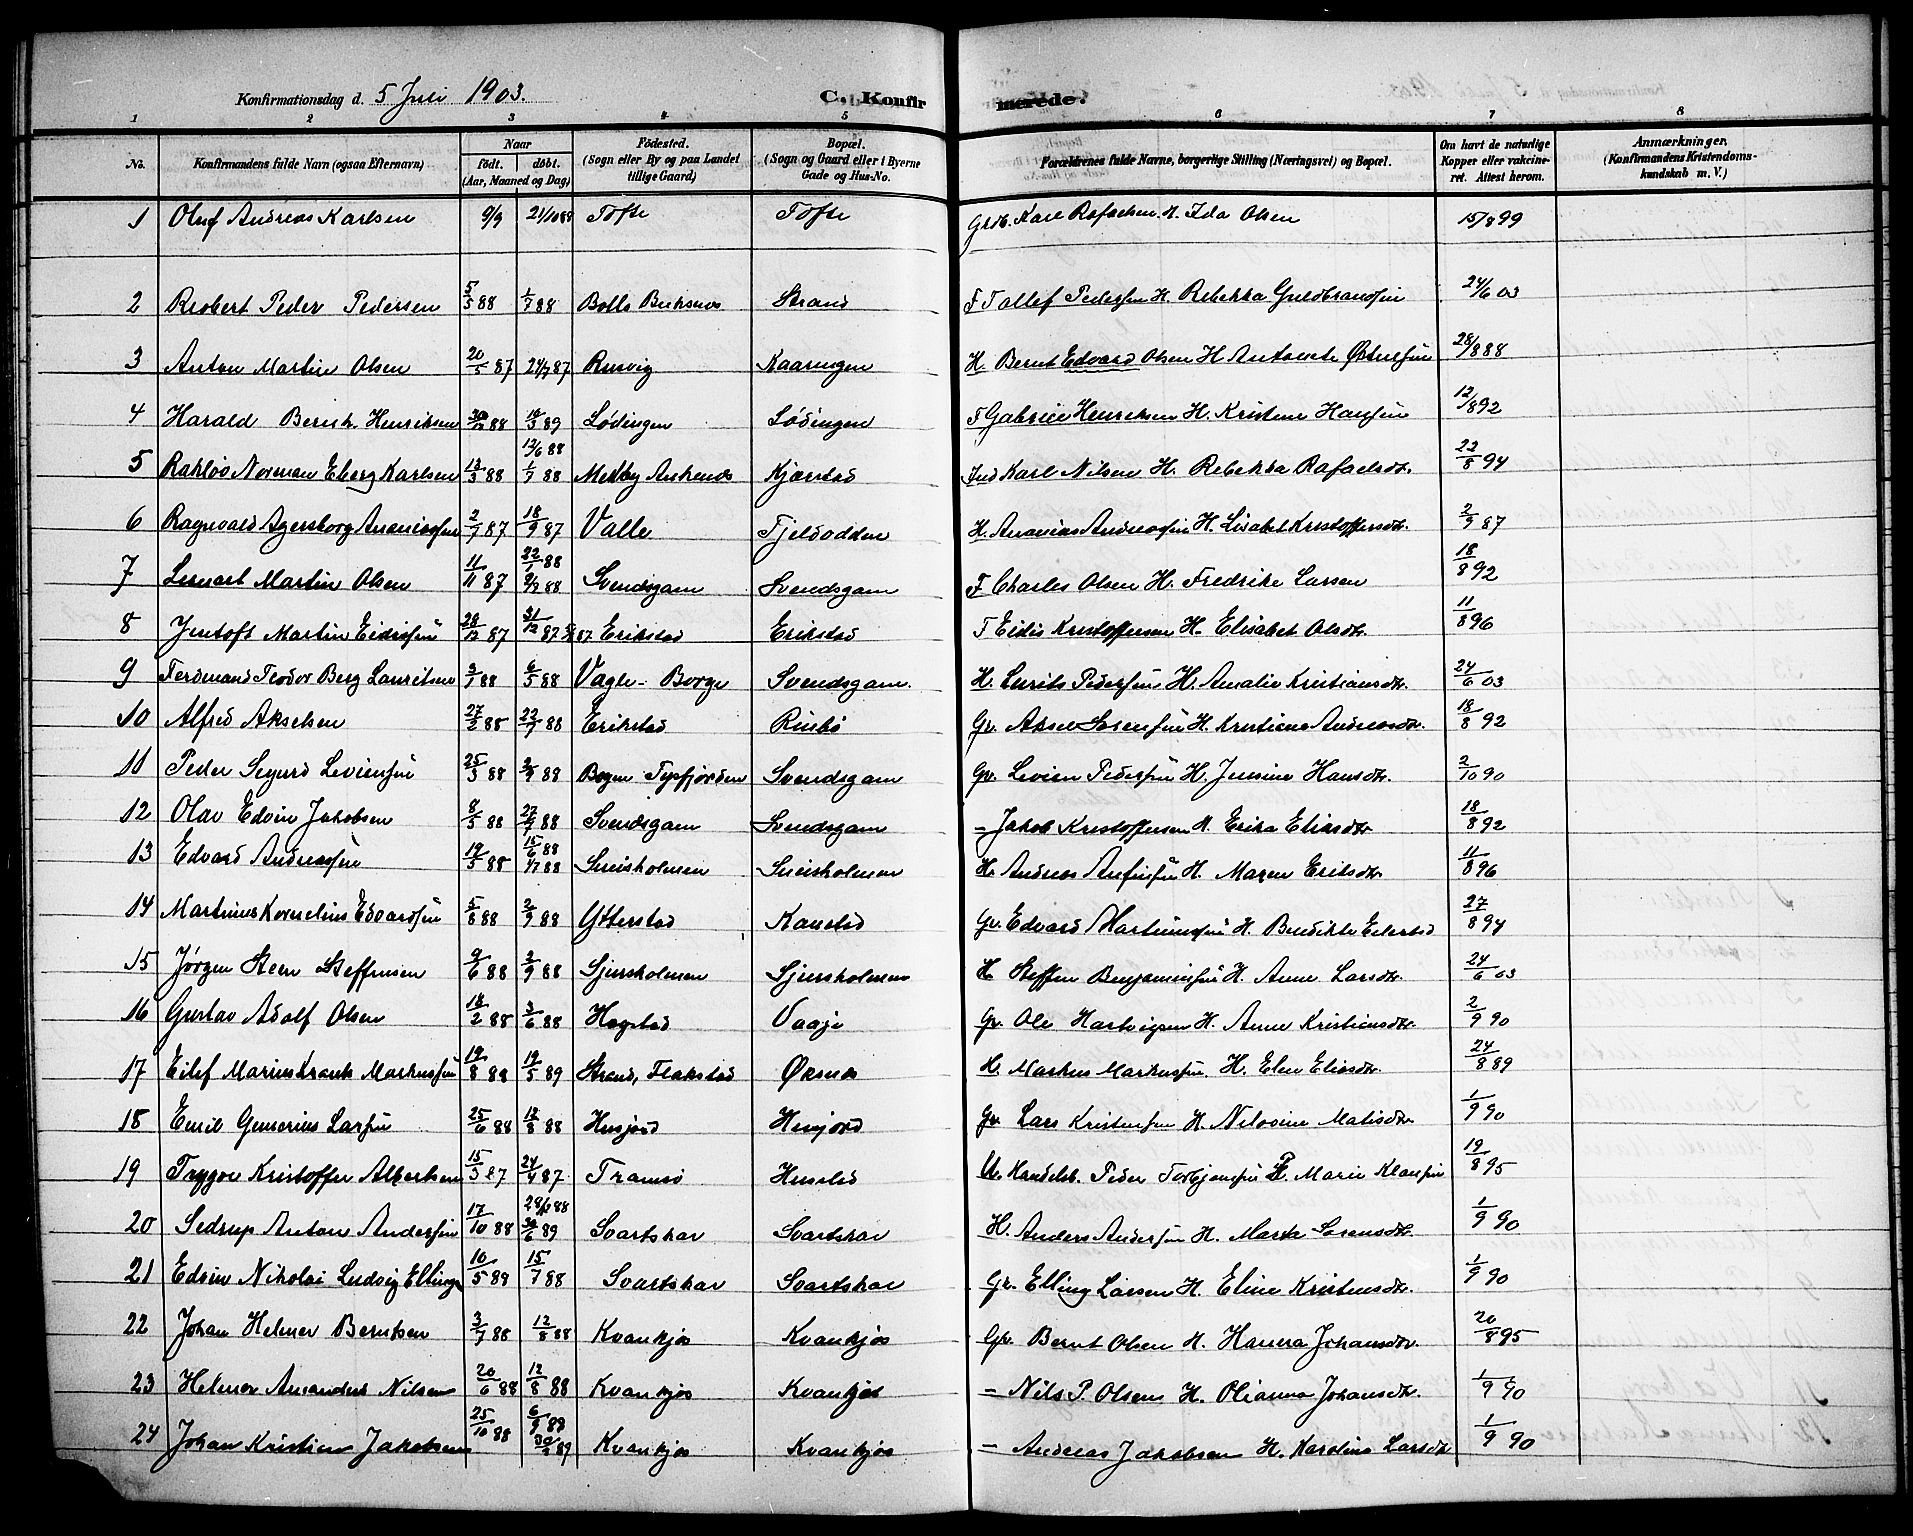 Konfirmationsdag d. 5 Juli 1903. C. Konfirmerede.
1 2 3 4 5 6 7 8
No. Konfirmandens fulde Navn (ogsaa Efternavn) Naar født. døbt. (Aar, Maaned og Dag) Fødested. (Sogn eller By og paa Landet tillige Gaard) Bopæl. (Sogn og Gaard eller i Byerne Gade og Hus-No. Forældrenes fulde Navne, borgerlige Stilling (Næringsvei) og Bopæl. Om havt de naturlige Kopper eller vakcineret. Attest herom. Anmærkninger. (Konfirmandens Kristendomskundskab m. V.)
1 Oluf Andreas Karlsen 9/9 21/10 89 Tofte Tofte Grdb. Karl Rafaelsen H. Ida Olsen 15/8 99
2 Robert Peder Pedersen 5/5 88 1/7 88 Bolle Buksnes Strand F Tollef Pedersen H. Rebekka Guldbrandsen 24/6 03
3 Anton Martin Olsen 20/5 87 24/7 87 Rusvig Kaaringen H. Bernt Edvard Olsen H Antonete Østensen 28/8 88
4 Harald Bernh. Henriksen 30/12 88 10/3 89 Lødingen Lødingen F Gabriel Henriksen H. Kristine Hansen 12/8 92
12/6 88
5 Rakløv Norman Eberg Karlsen 13/3 88 1/7 88 Melby Ankenes Kjærstad Ind Karl Nilsen H. Rebekka Rafaelsdtr. 22/8 94
6 Ragnvald Agersborg Ananiassen 2/7 87 18/9 87 Valle Fjeldodden H. Ananias Andreassen H. Lisabet Kristoffersdtr. 2/9 87
22/1 88
7 Lenart Martin Olsen 11/11 87 9/9 88 Svendsgam Svendsgam F Charles Olsen H. Fredrike Larsen 18/8 92
8 Jentoft Martin Eidissen 28/12 87 31/12 87 Erikstad Erikstad F Eidis Kristoffersen H. Elisabet Olsdtr. 11/8 96
9 Ferdinand Teodor Berg Lauritsen 3/1 88 6/5 88 Vagle - Borge Svendsgam. H. Lurits Pedersen H. Amalie Kristiansdtr. 24/6 03
10 Alfred Akselsen 27/2 88 22/7 88 Erikstad Rinbø Gr. Aksel Sørensen H. Kristiane Andreasdtr. 18/8 92
11 Peder Sigurd Leviensen 25/3 88 2/9 88 Bogen Tysfjorden Svendsgam Gr. Levien Pedersen H. Jensine Hansdtr. 2/10 90
12 Olav Edvin Jakobsen 8/5 88 27/7 88 Svendsgam Svendsgam - Jakob Kristoffersen H. Erika Eliasdtr. 18/8 92
15/6 88
13 Edvard Andreassen 19/5 88 1/7 88 Sneisholmen Sneisholmen H. Andreas Anfinsen H. Maren Eriksdtr. 11/8 96
14 Martinus Kornelius Edvardsen 5/8 88 2/9 88 Ytterstad Kanstad Gr. Edvard Martinussen H. Bendikte Eilertsd 27/8 94
15 Jørgen Steen Steffensen 9/6 88 2/9 88 Sjursholmen Sjursholmen H Steffen Benjaminsen H. Anne Larsdtr. 24/6 03
16 Gustav Adolf Olsen 18/2 88 3/6 88 Hegstad Vaaje Gr. Ole Hartvigsen H. Anne Kristiansdtr. 2/9 90
17 Eilef Marius Krank Markussen 19/8 88 19/5 89 Strand, Flakstad Øksnes H. Markus Markussen. H. Elen Eliasdtr. 24/8 89
18 Emil Gunerius Larsen 25/6 88 12/8 88 Husjord Husjord Gr. Lars Kristensen H. Nilovine Matisdtr 1/9 90
19 Trygve Kristoffer Albertsen 15/3 87 24/4 87 Tromsø Husslid U. Handelsb. Peder Torbjønsen P. Marie Klausen 19/8 95
29/12 88
20 Sedrup Anton Andersen 17/10 88 30/6 89 Svartskar Svartskar H. Anders Andersen H. Marta Sørensdtr. 1/9 90
21 Edvin Nikolai Ludvig Ellings 10/5 89 15/7 88 Svartskar Svartskar Gr. Elling Larsen H. Eline Kristensdtr. 1/9 90
22 Johan Helmer Berntsen 3/7 88 12/8 88 Kvankjos Kvankjos Gr. Bernt Olsen H. Hanna Johansdtr. 20/8 95
23 Helmer Amandus Nilsen 20/6 88 12/8 88 Kvankjos Kvankjos - Nils P. Olsen H. Olianna Johansdtr. 1/9 90
24 Johan Kristian Jakobsen 25/10 88 6/9 88 30/3 89 Kvankjos Kvankjos - Andreas Jakobsen H. Karolina Larsdtr 1/9 90